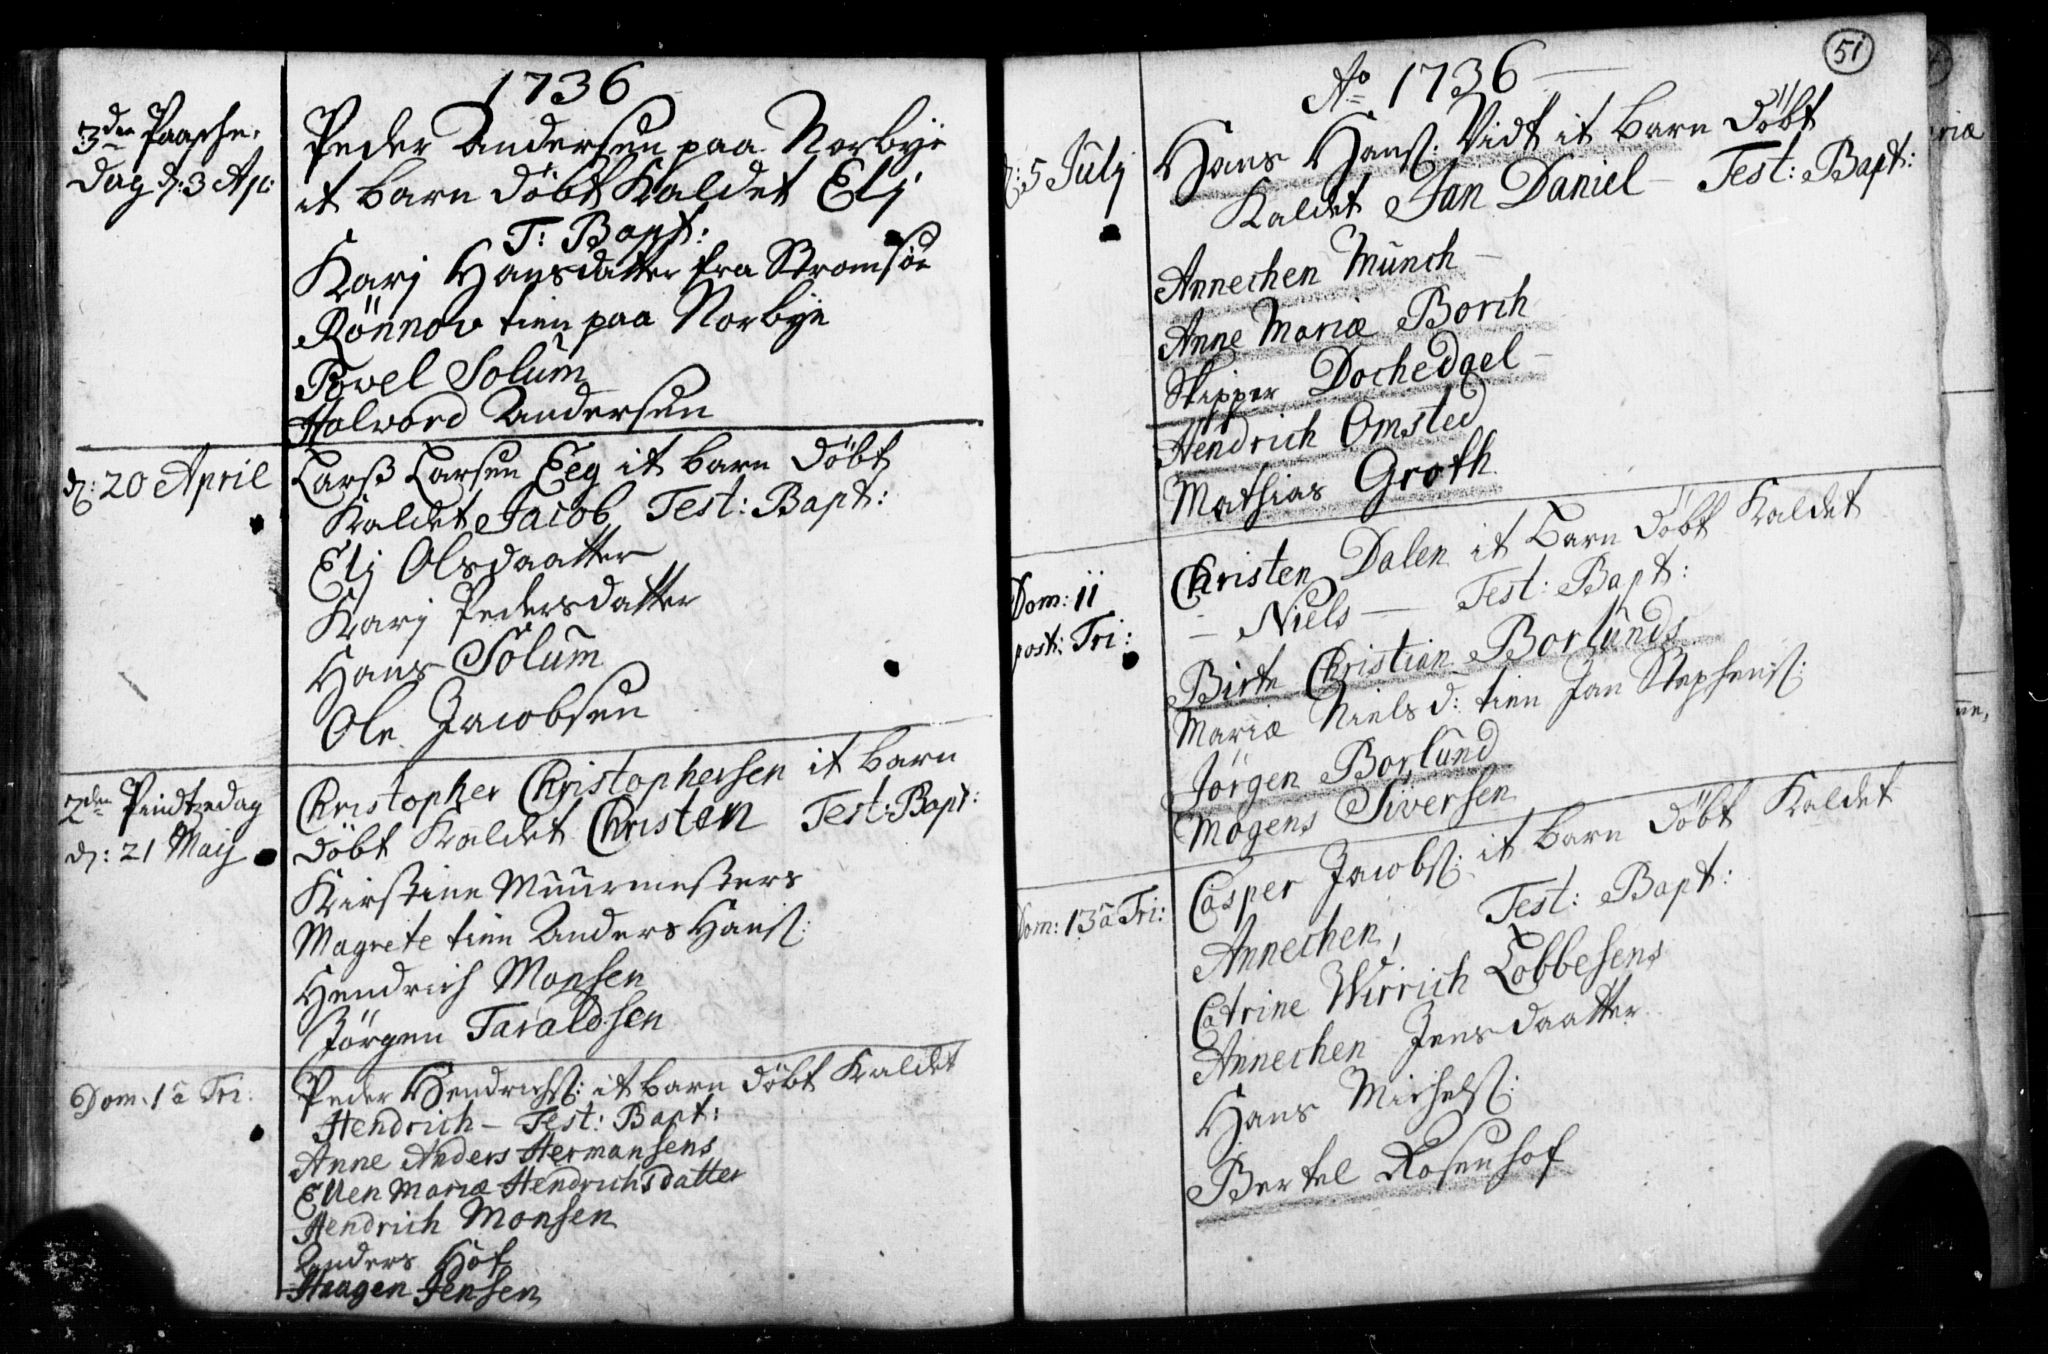 1736
3den Paasche
dag d: 3 Ap:
Peder Andersen paa Norbÿe
it barn döbt Kaldet Elj
T: Bapt:
Karj Hansdatter fra Stromsöe
Rönnov tien paa Norbÿe
Powel Solum
Halword Andersen
d: 20 April
Larß Larsen Eeg it barn döbt
Kaldet Jacob Test: Bapt:
Elj Olsdaatter
Karj Pedersdatter
Hans Solum
Ole Jacobsen
2den Pindtzedag
d: 21 Maij
Christopher Christophersen it barn
döbt Kaldet Christen Test: Bapt:
Kirstine Muurmesters
Magrete tien Anders Hanß:
Hendrich Monsen
Jörgen Taraldsen
Dom: 1 a Tri:
Peder Hendrichß: it barn döbt Kaldet
Hendrich – Test: Bapt:
Anne Anders Hermansens
Ellen Mariæ Hendrichsdatter
Hendrich Monsen
Anders Hof
Haagen Jensen
51
Ao 1736
d: 5 Julj
Hans Hanß: Vidt it barn döbt
Kaldet Jan Daniel – Test: Bapt:
Annechen Munch –
Anne Mariæ Borch
Skipper Dochedael –
Hendrich Omsted
Mathias Groth
Dom: 11
post: Tri:
Christen Dalen it barn döbt Kaldet
– Niels – Test: Bapt:
Birte Christian Borlunds
Mariæ Niels d: tien Jan Stephenß:
Jörgen Borlund
Mogens Siversen
Dom: 13 a Tri:
Casper Jacobß: it barn döbt Kaldet
Annechen, Test: Bapt:
Catrine Wirrich Lobbesens
Annechen Jensdaatter
Hans Michelß:
Bertel Rosenhof